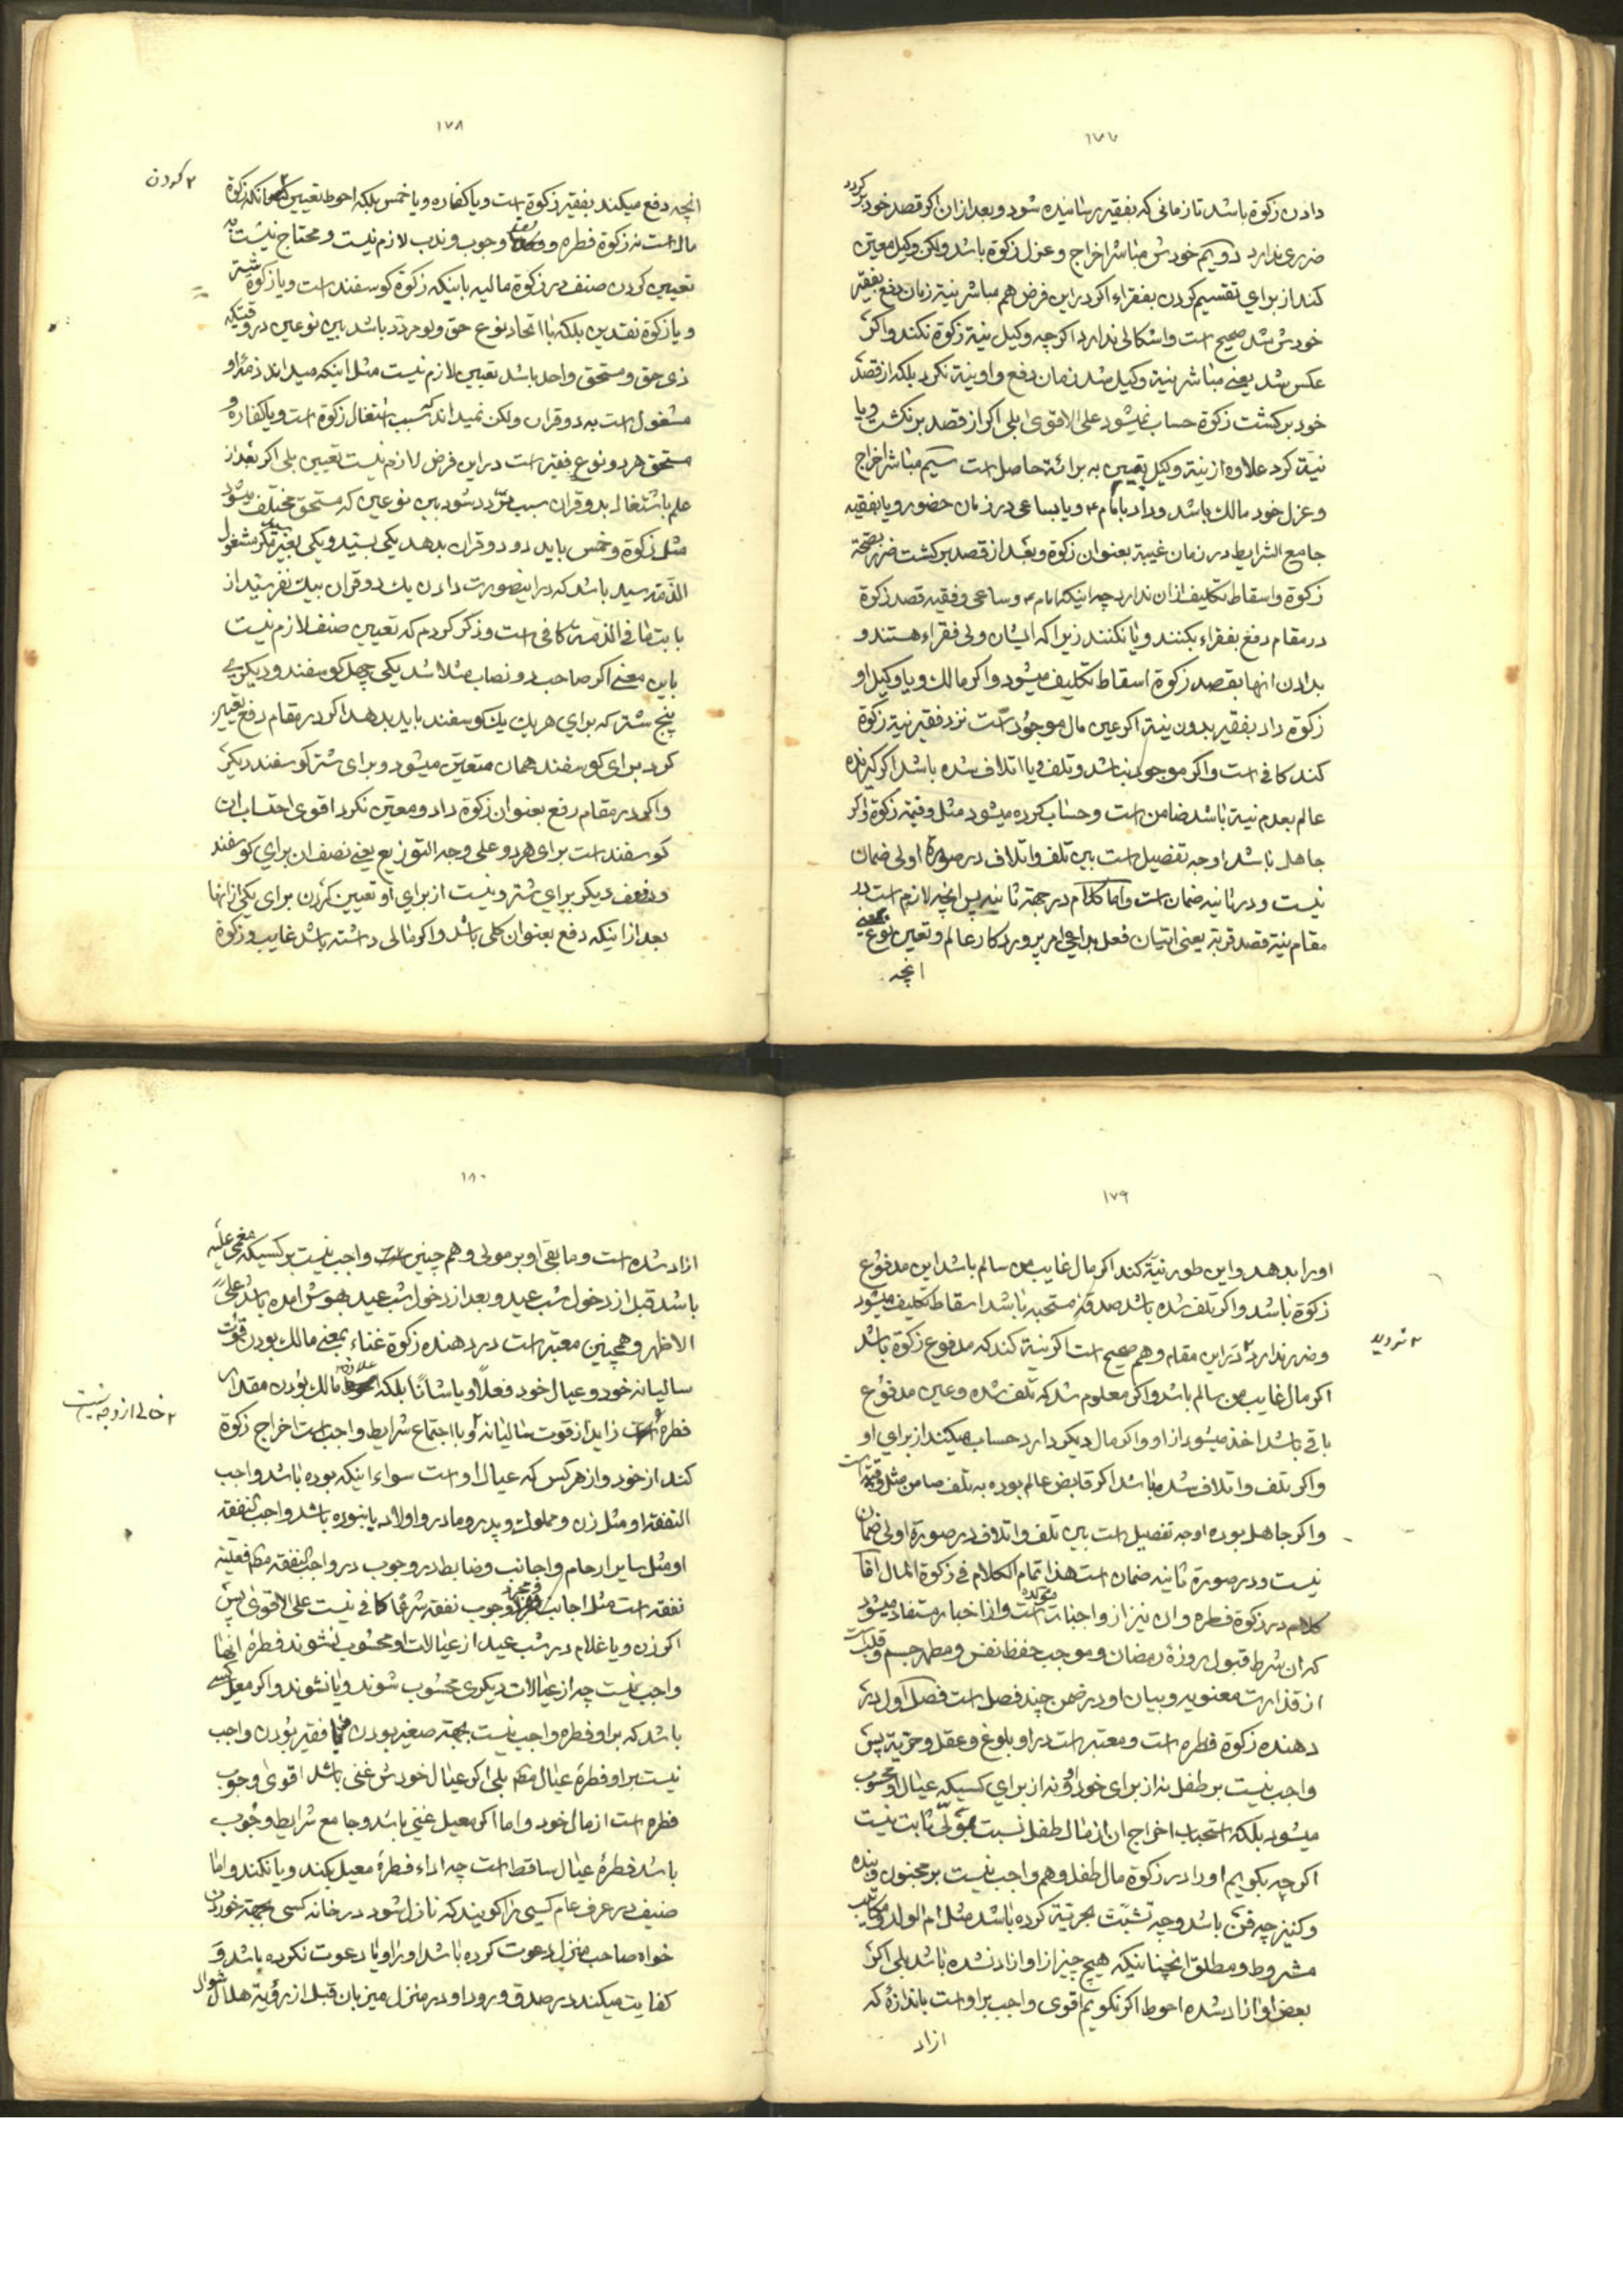 ۱۷۷
دادن زکوة باشد تا زمانی که بفقیر رسانیده شود و بعد از ان اکر قصد خود بر کردد
ضرری ندارد دویم خودش مباشر اخراج و عزل زکوة باشد ولکن وکیل معین
کند از برای تقسیم کردن بفقراء اکر در این فرض هم مباشر نیة زمان دفع بفقیر
خودش شد صحیح است و اشکالی ندارد اکر چه وکیل نیة زکوة نکند و اکر
عکس شد یعنی مباشر نیة وکیل شد زمان دفع و او نیة نکرد بلکه از قصد
خود برکشت زکوة حساب نمیشود علی الاقوی بلی اکر از قصد برنکشت و یا
نیة کرد علاوه از نیة وکیل یقین به برائة حاصل است سیم مباشر اخراج
و عزل خود مالک باشد و داد بامام ع و یا بساعی در زمان حضور و یا بفقیه
جامع الشرایط در زمان غیبة بعنوان زکوة و بعد از قصد برکشت ضرر بصحة
زکوة و اسقاط تکلیف از ان ندارد چه اینکه امام ع و ساعی و فقیه قصد زکوة
در مقام دفع بفقراء بکنند و یا نکنند زیرا که ایشان ولی فقراء هستند و
بدادن انها بقصد زکوة اسقاط تکلیف میشود و اکر مالک و یا وکیل او
زکوة داد بفقیر بدون نیة اکر عین مال موجود است نزد فقیر نیة زکوة
کند کافی است و اکر موجود نباشد و تلف و یا اتلاف شده باشد اکر کیرنده
عالم بعدم نیة باشد ضامن است و حساب کرده میشود مثل و قیمة زکوة و اکر
جاهل باشد اوجه تفصیل است بین تلف و اتلاف در صورة اولی ضمان
نیست و در ثانیه ضمان است و اما کلام در جهة ثانیه پس انچه لازم است در
مقام نیة قصد قربة یعنی اتیان فعل بداعی امر پروردکار عالم و تعیین نوع یعنی
انچه
۱۷۸
انچه دفع میکند بفقیر زکوة است و یا کفاره و یا خمس بلکه احوط تعیین ۲ انکه زکوة
۲ کردن
مال است نه زکوة فطره و وجوب و ندب لازم نیست و محتاج نیست به
تعیین کردن صنف در زکوة مالیه باینکه زکوة کوسفند است و یا زکوة شتر
و یا زکوة نقدین بلکه با اتحاد نوع حق ولو مردّد باشد بین نوعین در وقتیکه
ذی حق و مستحق واحد باشد تعیین لازم نیست مثل اینکه میداند ذمّه او
مشغول است به دو قران ولکن نمیداند که سبب اشتغال زکوة است و یا کفاره و
مستحق هر دو نوع فقیر است در این فرض لازم نیست تعیین بلی اکر بعد از
علم باشتغال بدو قران سبب مردد شود بین نوعین که مستحق مختلف میشود
مثل زکوة و خمس باید دو دو قران بدهد یکی بسید و یکی بغیر سید مکر مشغول
الذمه سید باشد که در اینصورت دادن یک دو قران بیک نفر سید از
بابت ما فی الذمة کافی است و ذکر کردم که تعیین صنف لازم نیست
باین معنی اکر صاحب دو نصاب مثلا شد یکی چهل کوسفند و دیکری
پنج شتر که برای هر یک یک کوسفند باید بدهد اکر در مقام دفع تعیین
کرد برای کوسفند همان متعین میشود و برای شتر کوسفند دیکر
و اکر در مقام دفع بعنوان زکوة داد و معین نکرد اقوی احتساب ان
کوسفند است برای هر دو علی وجه التوزیع یعنی نصف ان برای کوسفند
و نصف دیکر برای شتر و نیست از برای او تعیین کردن برای یکی از انها
بعد از اینکه دفع بعنوان کلی باشد و اکر مالی داشته باشد غایب و زکوة
۱۷۹
او را بدهد و این طور نیة کند اکر مال غایب من سالم باشد این مدفوع
زکوة باشد و اکر تلف شده باشد صدقه مستحبه باشد اسقاط تکلیف میشود
و ضرر ندارد ۲ در این مقام و هم صحیح است اکر نیة کند که مدفوع زکوة باشد
۲ تردید
اکر مال غایب من سالم باشد و اکر معلوم شد که تلف شده و عین مدفوع
باقی باشد اخذ میشود از او و اکر مال دیکر دارد حساب میکند از برای او
و اکر تلف و اتلاف شده باشد اکر قابض عالم بوده به تلف ضامن مثل و قیمة است
و اکر جاهل بوده اوجه تفصیل است بین تلف و اتلاف در صورة اولی ضمان
نیست و در صورة ثانیه ضمان است هذا تمام الکلام فی زکوة المال اما
کلام در زکوة فطره و ان نیز از واجبات مؤکده است و از اخبار مستفاد میشود
که ان شرط قبول روزۀ رمضان و موجب حفظ نفس و مطهر جسم و قلب است
از قذارت معنویه و بیان او در ضمن چند فصل است فصل اول در
دهنده زکوة فطره است و معتبر است در او بلوغ و عقل و حریة پس
واجب نیست بر طفل نه از برای خود او و نه از برای کسیکه عیال او محسوب
میشود بلکه استحباب اخراج ان از مال طفل نسبت بمولّی ثابت نیست
اکر چه بکوییم او را در زکوة مال طفل و هم واجب نیست بر مجنون و بنده
و کنیز چه قنّ باشد و چه تشبّث بحریّة کرده باشد مثل ام الولد و مکاتب
مشروط و مطلق انچنانیکه هیچ چیز از او ازاد نشده باشد بلی اکر
بعض او ازاد شده احوط اکر نکوییم اقوی واجب بر او است باندازۀ که
ازاد
۱۸۰
ازاد شده است و ما بقی او بر مولی و هم چنین واجب نیست بر کسیکه مغمی علیه
باشد قبل از دخول شب عید و بعد از دخول شب عید بهوش امده باشد علی
الاظهر و همچنین معتبر است در دهنده زکوة غناء بمعنی مالک بودن قوت
سالیانه خود و عیال خود فعلاً و یا شأناً بلکه علاوه مالک بودن مقدار
فطره زاید از قوت سالیانه ۲ و با اجتماع شرایط واجب است اخراج زکوة
۲ خالی از وجه نیست
کند از خود و از هر کس که عیال او است سواء اینکه بوده باشد واجب
النفقه او مثل زن و مملوک و پدر و مادر و اولاد یا نبوده باشد واجب النفقه
او مثل سایر ارحام و اجانب و ضابط در وجوب در واجب النفقه هم فعلیة
نفقه است مثل اجانب و مجرد وجوب نفقه شرعا کافی نیست علی الاقوی پس
اکر زن و یا غلام در شب عید از عیالات او محسوب نشوند فطرۀ انها
واجب نیست چه از عیالات دیکری محسوب شوند و یا نشوند و اکر معیل کسی
باشد که بر او فطره واجب نیست بجهة صغیر بودن یا فقیر بودن واجب
نیست بر او فطرۀ عیال هم بلی اکر عیال خودش غنی باشد اقوی وجوب
فطره است از مال خود و اما اکر معیل غنی باشد و جامع شرایط وجوب
باشد فطرۀ عیال ساقط است چه اداء فطرۀ معیل بکند و یا نکند و اما
ضیف در عرف عام کسی را کویند که نازل شود در خانه کسی بجهة خوردن
خواه صاحب منزل دعوت کرده باشد او را و یا دعوت نکرده باشد و
کفایت میکند در صدق ورود او در منزل میزبان قبل از رؤیة هلال شوال